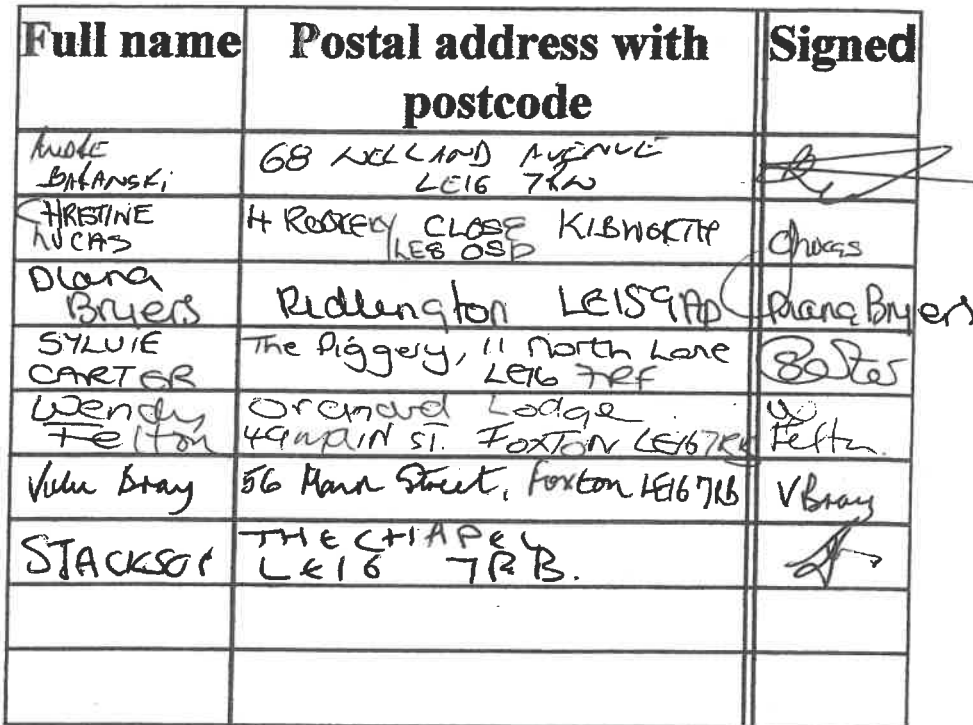 Full name Postal address with postcode Signed
BALANSKI 68 WELLAND AVENUE
LE16 7RW
CHRISTINE LUCAS 4 ROOKERY CLOSE KIBWORTH
LE8 0SP CLucas
Diana Bryers Ridlington LE15 9AD Diana Bryers
SYLVIE CARTER The Piggery, 11 North Lane
LE16 7RF
Wendy Felton Orchard Lodge
49 MAIN ST. FOXTON LE16 7RB W Felton
Bray 56 Main Street, Foxton LE16 7RB V Bray
THE CHAPEL
LE16 7RB.